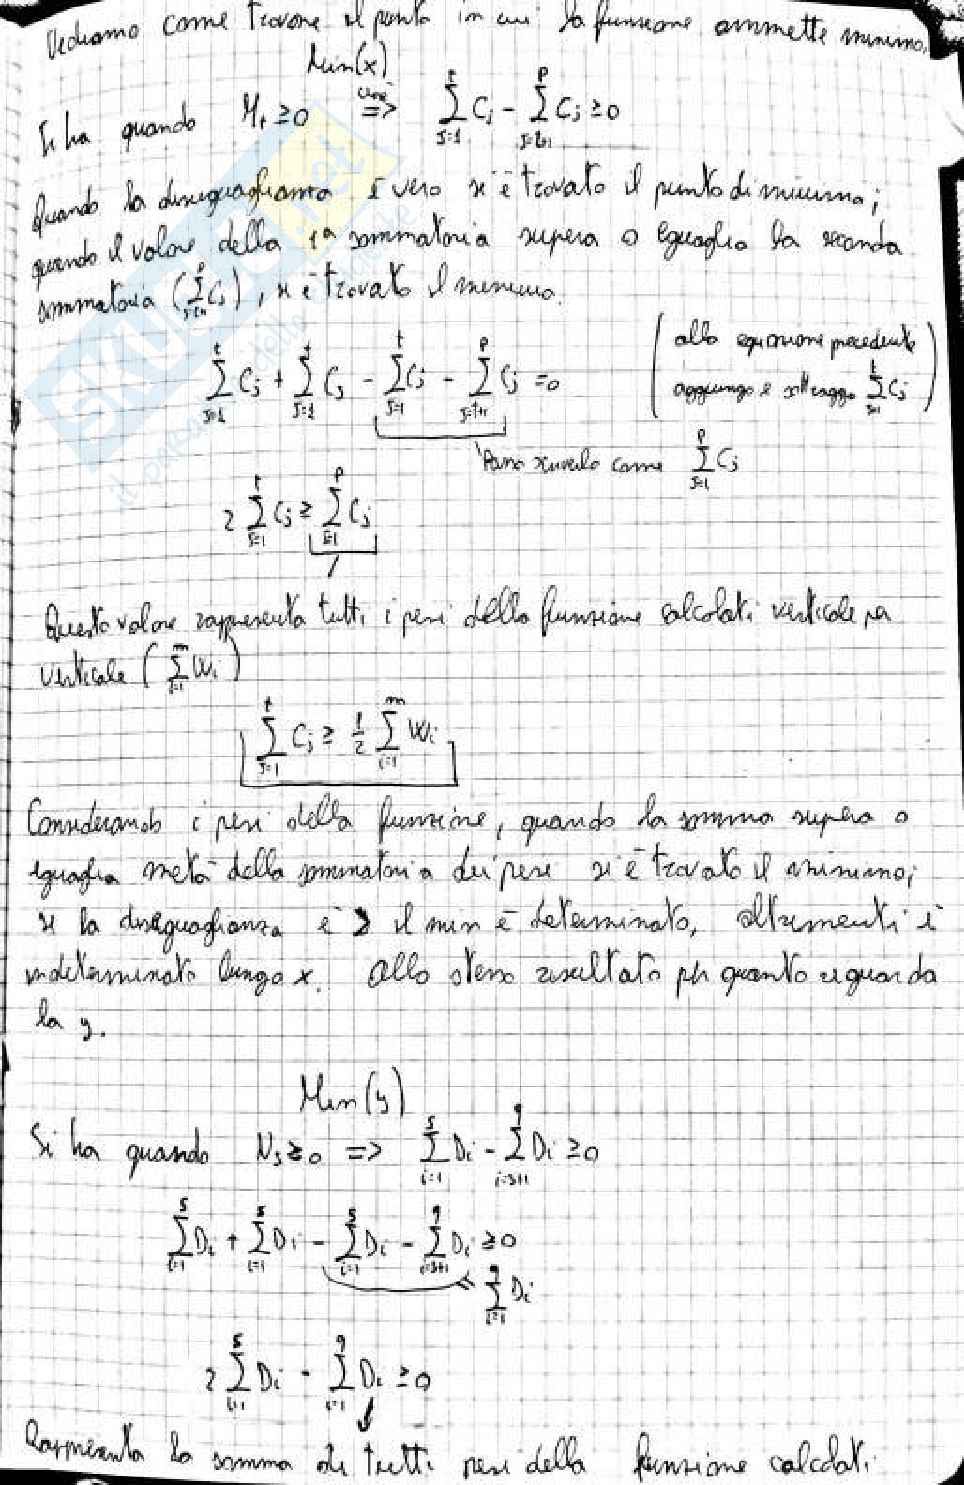 Vediamo come trovare il punto in cui la funzione ammette minimo.
Min(x)
Si ha quando M_t ≥ 0 cioè => \sum_{j=1}^{t} C_j - \sum_{j=t+1}^{p} C_j ≥ 0
Quando la diseguaglianza è vera si è trovato il punto di minimo;
quando il valore della 1ª sommatoria supera o eguaglia la seconda
sommatoria (\sum_{j=t+1}^{p} C_j), si è trovato il minimo.
\sum_{j=1}^{t} C_j + \sum_{j=1}^{t} C_j - \sum_{j=1}^{t} C_j - \sum_{j=t+1}^{p} C_j = 0 (alla equazione precedente
aggiungo e sottraggo \sum_{j=1}^{t} C_j)
Posso scriverlo come \sum_{j=1}^{p} C_j
2 \sum_{j=1}^{t} C_j ≥ \sum_{j=1}^{p} C_j
Questo valore rappresenta tutti i pesi della funzione calcolati verticale per
verticale (\sum_{i=1}^{m} W_i)
\sum_{j=1}^{t} C_j ≥ \frac{1}{2} \sum_{i=1}^{m} W_i
Considerando i pesi della funzione, quando la somma supera o
eguaglia metà della sommatoria dei pesi si è trovato il minimo;
se la diseguaglianza è > il min è determinato, altrimenti è
indeterminato lungo x. Allo stesso risultato per quanto riguarda
la y.
Min(y)
Si ha quando N_s ≥ 0 => \sum_{i=1}^{s} D_i - \sum_{i=s+1}^{q} D_i ≥ 0
\sum_{i=1}^{s} D_i + \sum_{i=1}^{s} D_i - \sum_{i=1}^{s} D_i - \sum_{i=s+1}^{q} D_i ≥ 0
\sum_{i=1}^{q} D_i
2 \sum_{i=1}^{s} D_i - \sum_{i=1}^{q} D_i ≥ 0
Rappresenta la somma di tutti pesi della funzione calcolati